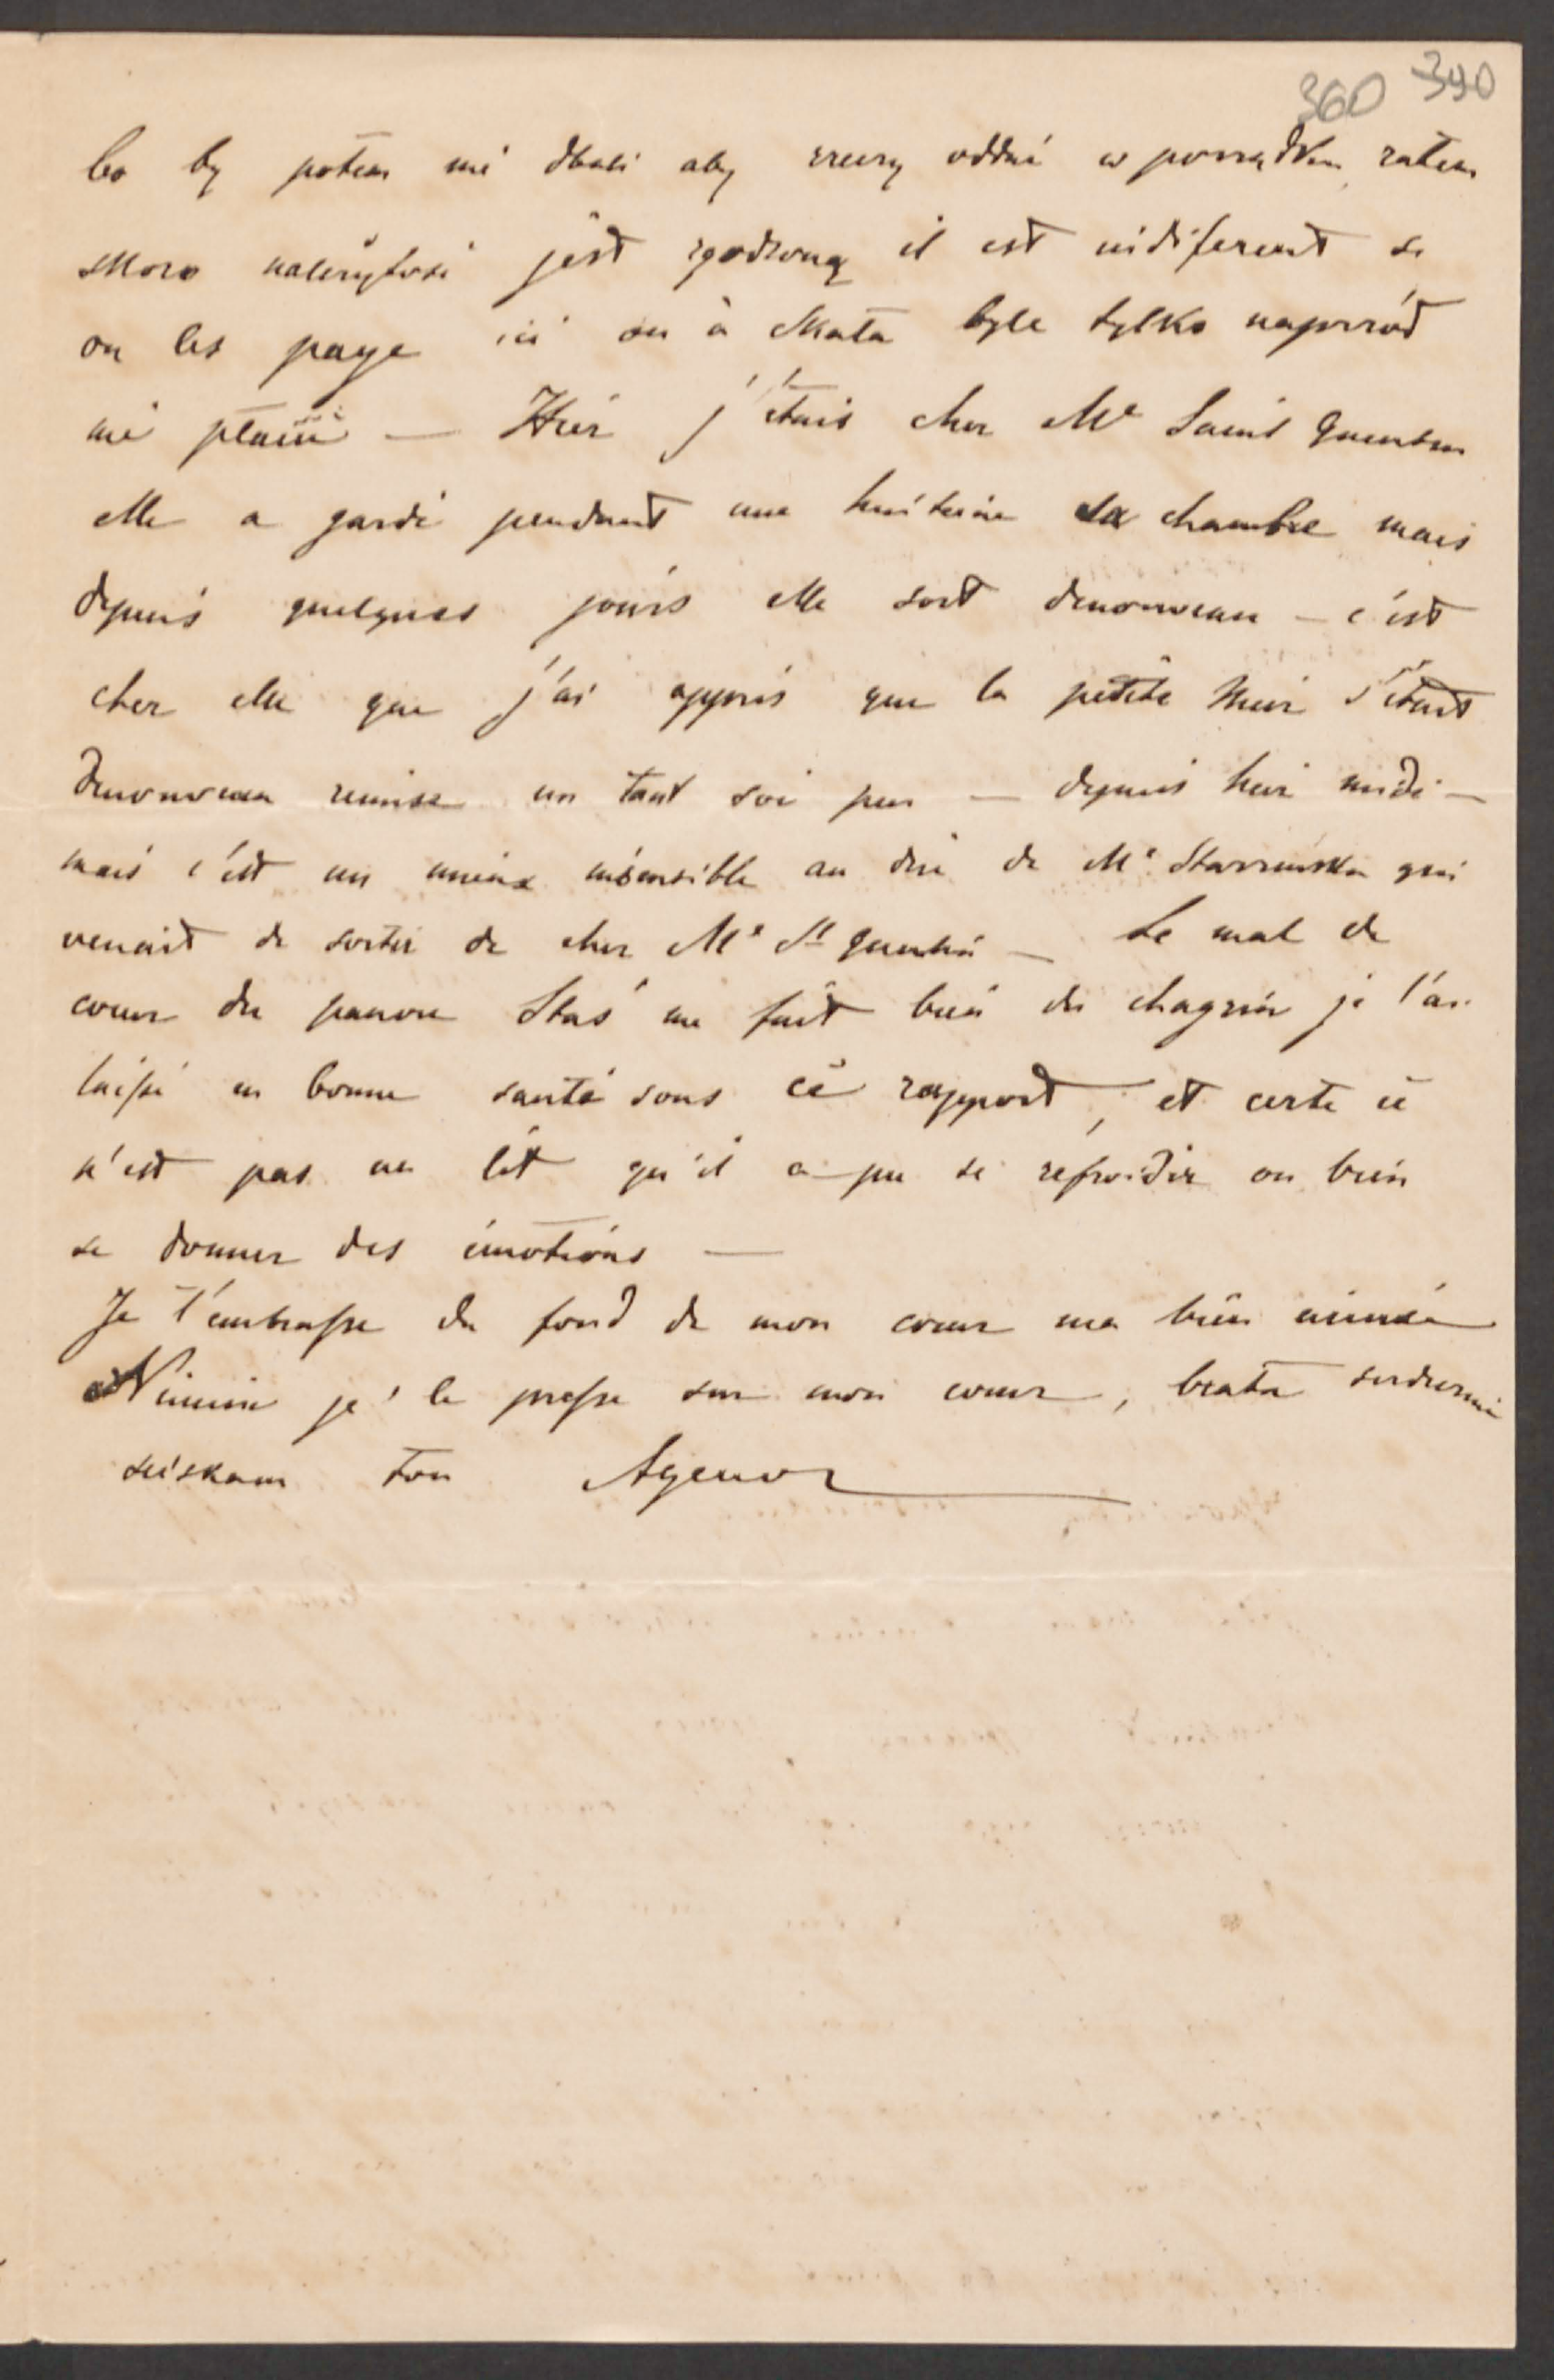 360 390
bo by potem nie dbali aby rzeczy oddać w porządku, zatem
skoro należytość jest zgodzoną il est indiferent si
on les paye ici ou à Skała byle tylko naprzód
nie płacić — Hier j'étais chez Me Saint Quentin
elle a gardé pendant une huitaine sa chambre mais
depuis quelques jours elle sort denouveau — c'est
chez elle que j'ai appris que la petite s'était
denouveau remise un tant soi peu — depuis hier midi —
mais c'est un mieux insensible au dire de Me Starzeńska qui
venait de sortir de chez Me St Quentin — Le mal de
coeur du pauvre Staś me fait bien du chagrin je l'ai
laissé en bonne santé sous ce rapport, et certe ce
n'est pas au lit qu'il a pu se refroidir ou bien
se donner des émotions —
Je t'embrasse du fond de mon coeur ma bien aimée
je te presse sur mon coeur, brata serdecznie
ściskam ton Agenor